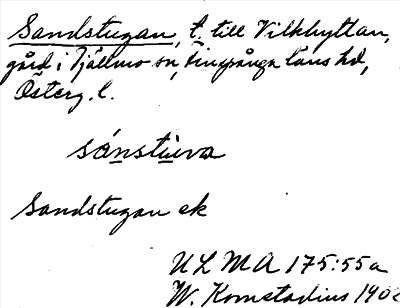 Sandstugan, t. till Vilkhyttan,
gård i Tjällmo sn, Finspånga läns hd,
Österg. l.
sánstùva
Sandstugan ek
ULMA 175:55a
W. Komstadius 190